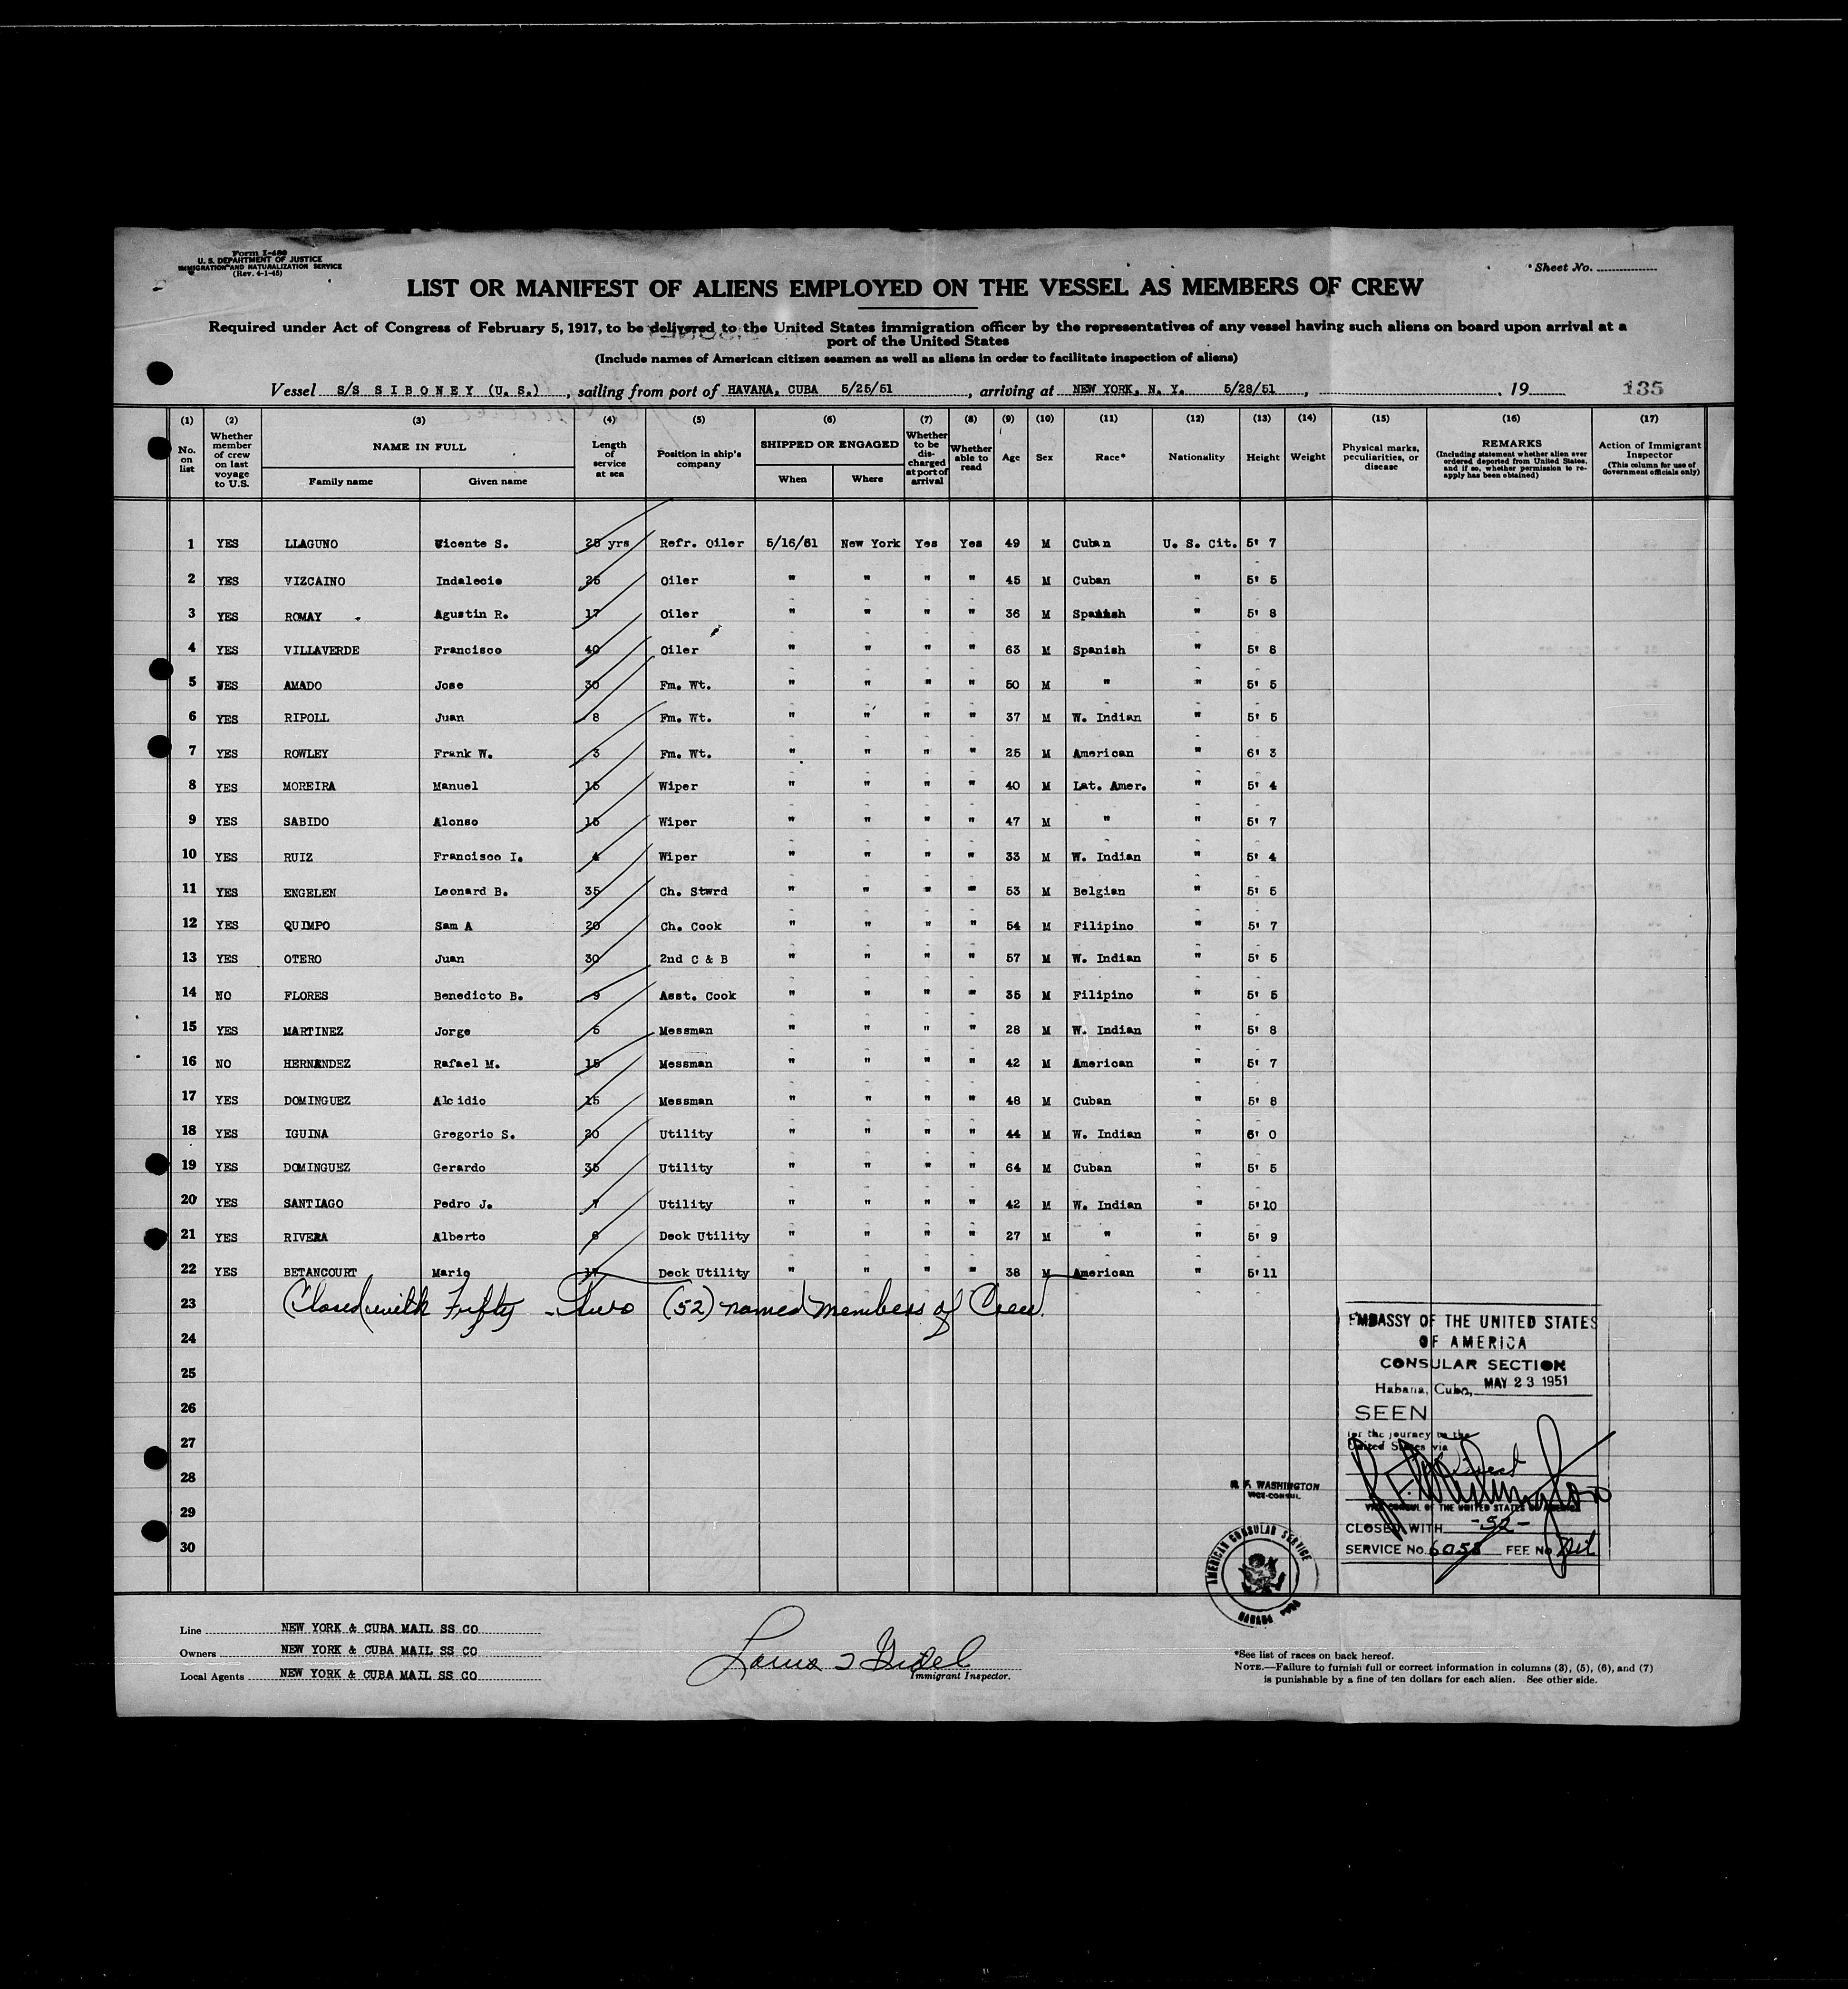 Form I-480
U. S. DEPARTMENT OF JUSTICE
IMMIGRATION AND NATURALIZATION SERVICE
(Rev. 4-1-45)
Sheet No.
LIST OR MANIFEST OF ALIENS EMPLOYED ON THE VESSEL AS MEMBERS OF CREW
Required under Act of Congress of February 5, 1917, to be delivered to the United States immigration officer by the representatives of any vessel having such aliens on board upon arrival at a
port of the United States
(Include names of American citizen seamen as well as aliens in order to facilitate inspection of aliens)
Vessel S/S SIBONEY (U. S.), sailing from port of HAVANA, CUBA 5/25/51, arriving at NEW YORK, N. Y. 5/28/51, 19 135
(1) (2) (3) (4) (5) (6) (7) (8) (9) (10) (11) (12) (13) (14) (15) (16) (17)
No. on list Whether member of crew on last voyage to U.S. NAME IN FULL Family name Given name Length of service at sea Position in ship's company SHIPPED OR ENGAGED When Where Whether to be discharged at port of arrival Whether able to read Age Sex Race* Nationality Height Weight Physical marks, peculiarities, or disease REMARKS (Including statement whether alien ever ordered deported from United States, and if so, whether permission to reapply has been obtained) Action of Immigrant Inspector (This column for use of Government officials only)
1 YES LLAGUNO Vicente S. 25 yrs Refr. Oiler 5/16/51 New York Yes Yes 49 M Cuban U. S. Cit. 5' 7
2 YES VIZCAINO Indalecio 25 Oiler " " " " 45 M Cuban " 5' 5
3 YES ROMAY Agustin R. 17 Oiler " " " " 36 M Spanish " 5' 8
4 YES VILLAVERDE Francisco 40 Oiler " " " " 63 M Spanish " 5' 8
5 YES AMADO Jose 30 Fm. Wt. " " " " 50 M " " 5' 5
6 YES RIPOLL Juan 8 Fm. Wt. " " " " 37 M W. Indian " 5' 5
7 YES ROWLEY Frank W. 3 Fm. Wt. " " " " 25 M American " 6' 3
8 YES MOREIRA Manuel 15 Wiper " " " " 40 M Lat. Amer. " 5' 4
9 YES SABIDO Alonso 15 Wiper " " " " 47 M " " 5' 7
10 YES RUIZ Francisco I. 4 Wiper " " " " 33 M W. Indian " 5' 4
11 YES ENGELEN Leonard B. 35 Ch. Stwrd " " " " 53 M Belgian " 5' 5
12 YES QUIMPO Sam A 20 Ch. Cook " " " " 54 M Filipino " 5' 7
13 YES OTERO Juan 30 2nd C & B " " " " 57 M W. Indian " 5' 5
14 NO FLORES Benedicto B. 9 Asst. Cook " " " " 35 M Filipino " 5' 5
15 YES MARTINEZ Jorge 5 Messman " " " " 28 M W. Indian " 5' 8
16 NO HERNANDEZ Rafael M. 15 Messman " " " " 42 M American " 5' 7
17 YES DOMINGUEZ Alcidio 15 Messman " " " " 48 M Cuban " 5' 8
18 YES IGUINA Gregorio S. 20 Utility " " " " 44 M W. Indian " 6' 0
19 YES DOMINGUEZ Gerardo 35 Utility " " " " 64 M Cuban " 5' 5
20 YES SANTIAGO Pedro J. 7 Utility " " " " 42 M W. Indian " 5'10
21 YES RIVERA Alberto 6 Deck Utility " " " " 27 M " " 5' 9
22 YES BETANCOURT Mario 17 Deck Utility " " " " 38 M American " 5'11
23 Closed with Fifty - Two (52) named members of Crew.
24
25
26
27
28
29
30
EMBASSY OF THE UNITED STATES
OF AMERICA
CONSULAR SECTION
Habana, Cuba, MAY 23 1951
SEEN
for the journey to the
United States via
R. F. WASHINGTON
VICE-CONSUL
VICE CONSUL OF THE UNITED STATES OF AMERICA
CLOSED WITH -52-
SERVICE No. 6058 FEE No. Nil
AMERICAN CONSULAR SERVICE
HABANA CUBA
Line NEW YORK & CUBA MAIL SS CO
Owners NEW YORK & CUBA MAIL SS CO
Local Agents NEW YORK & CUBA MAIL SS CO
Immigrant Inspector.
*See list of races on back hereof.
NOTE.—Failure to furnish full or correct information in columns (3), (5), (6), and (7)
is punishable by a fine of ten dollars for each alien. See other side.